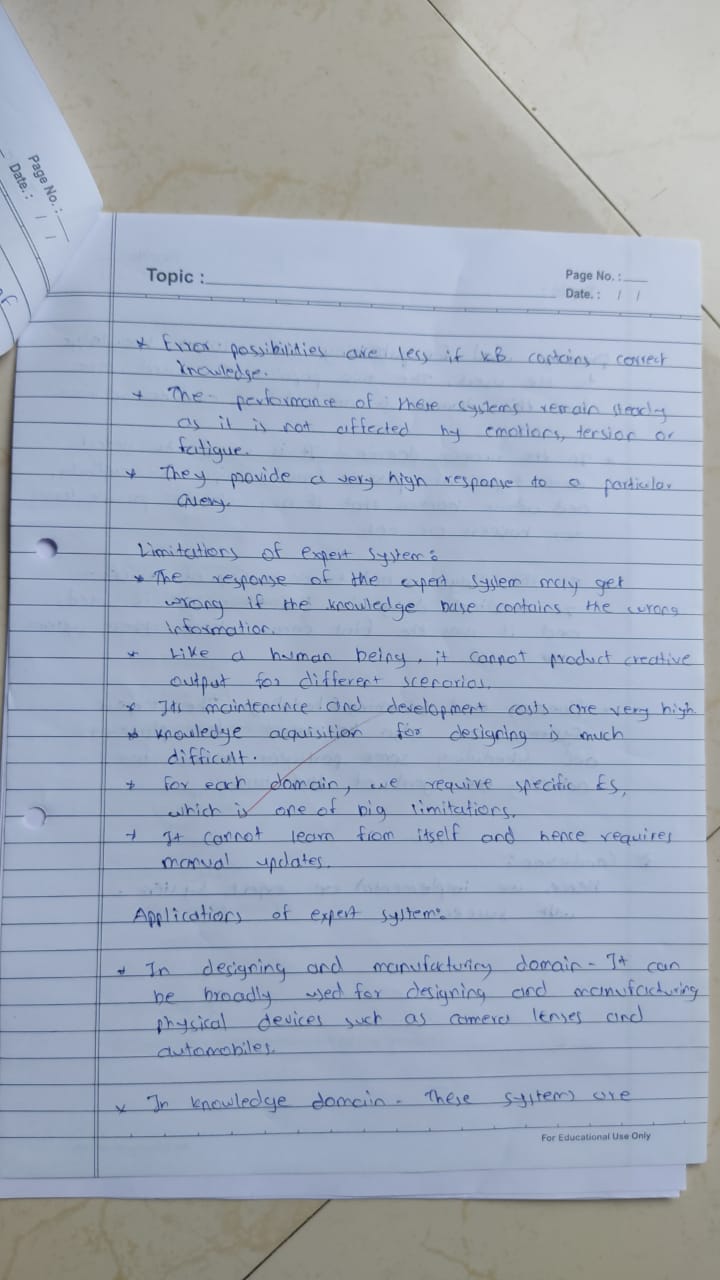 Page No. :
Date. : / /
of
Topic :
Page No. :
Date. : / /
* Error possibilities are less if KB contains correct
knowledge.
* The performance of these systems remain steady
as it is not affected by emotions, tension or
fatigue.
* They provide a very high response to a particular
query.
Limitations of expert system:
* The response of the expert system may get
wrong if the knowledge base contains the wrong
information.
* Like a human being, it cannot product creative
output for different scenarios.
* Its maintenance and development costs are very high
* knowledge acquisition for designing is much
difficult.
* for each domain, we require specific ES,
which is one of big limitations.
* It cannot learn from itself and hence requires
manual updates.
Applications of expert system:
* In designing and manufacturing domain - It can
be broadly used for designing and manufacturing
physical devices such as camera lenses and
automobiles.
* In knowledge domain - These systems are
For Educational Use Only